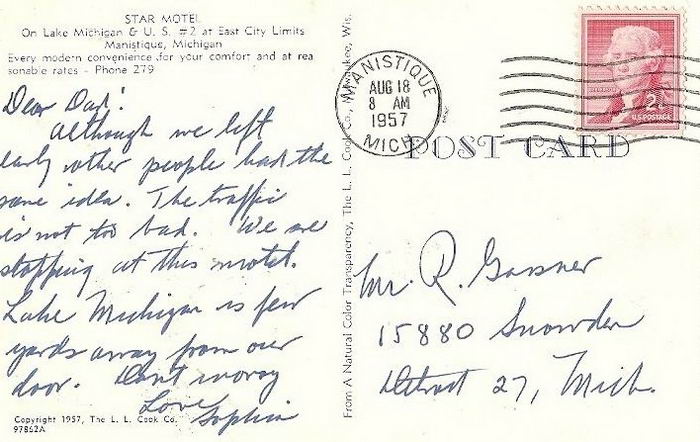 STAR MOTEL
On Lake Michigan & U. S. #2 at East City Limits
Manistique, Michigan
Every modern convenience for your comfort and at rea
sonable rates - Phone 279
Dear Dad!
Although we left
early other people had the
same idea. The traffic
is not to bad. We are
stopping at this motel.
Lake Michigan is few
yards away from our
door. Dont worry
Love
Sophia
Copyright 1957, The L. L. Cook Co.
97862A
From A Natural Color Transparency, The L. L. Cook Co., Milwaukee, Wis.
MANISTIQUE
AUG 18
8 AM
1957
MICH
2¢
U.S. POSTAGE
POST CARD
Mr. R. Gassner
15880 Snowden
Detroit 27, Mich.